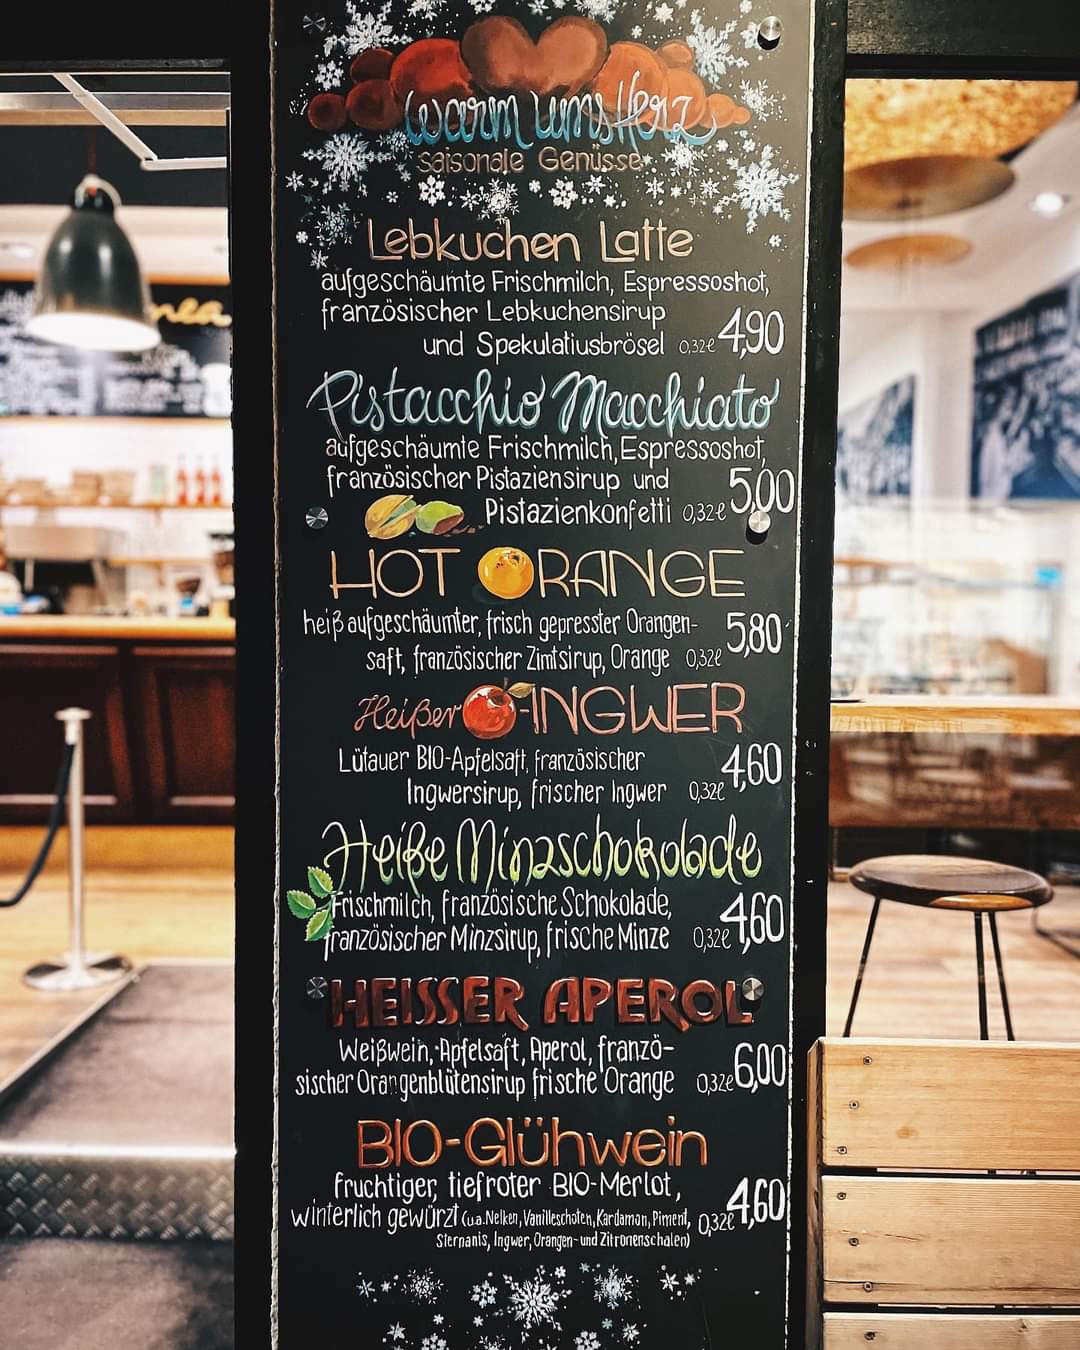 Warm ums Herz
saisonale Genüsse
Lebkuchen Latte
aufgeschäumte Frischmilch, Espressoshot,
französischer Lebkuchensirup
und Spekulatiusbrösel 0,32ℓ 4,90
Pistacchio Macchiato
aufgeschäumte Frischmilch, Espressoshot,
französischer Pistaziensirup und
Pistazienkonfetti 0,32ℓ 5,00
HOT ORANGE
heiß aufgeschäumter, frisch gepresster Orangen-
saft, französischer Zimtsirup, Orange 0,32ℓ 5,80
Heißer -INGWER
Lütauer BIO-Apfelsaft, französischer
Ingwersirup, frischer Ingwer 0,32ℓ 4,60
Heiße Minzschokolade
Frischmilch, französische Schokolade,
französischer Minzsirup, frische Minze 0,32ℓ 4,60
HEISSER APEROL
Weißwein, Apfelsaft, Aperol, franzö-
sischer Orangenblütensirup frische Orange 0,32ℓ 6,00
BIO-Glühwein
fruchtiger, tiefroter BIO-Merlot,
winterlich gewürzt (u.a. Nelken, Vanilleschoten, Kardamon, Piment, 0,32ℓ 4,60
Sternanis, Ingwer, Orangen- und Zitronenschalen)